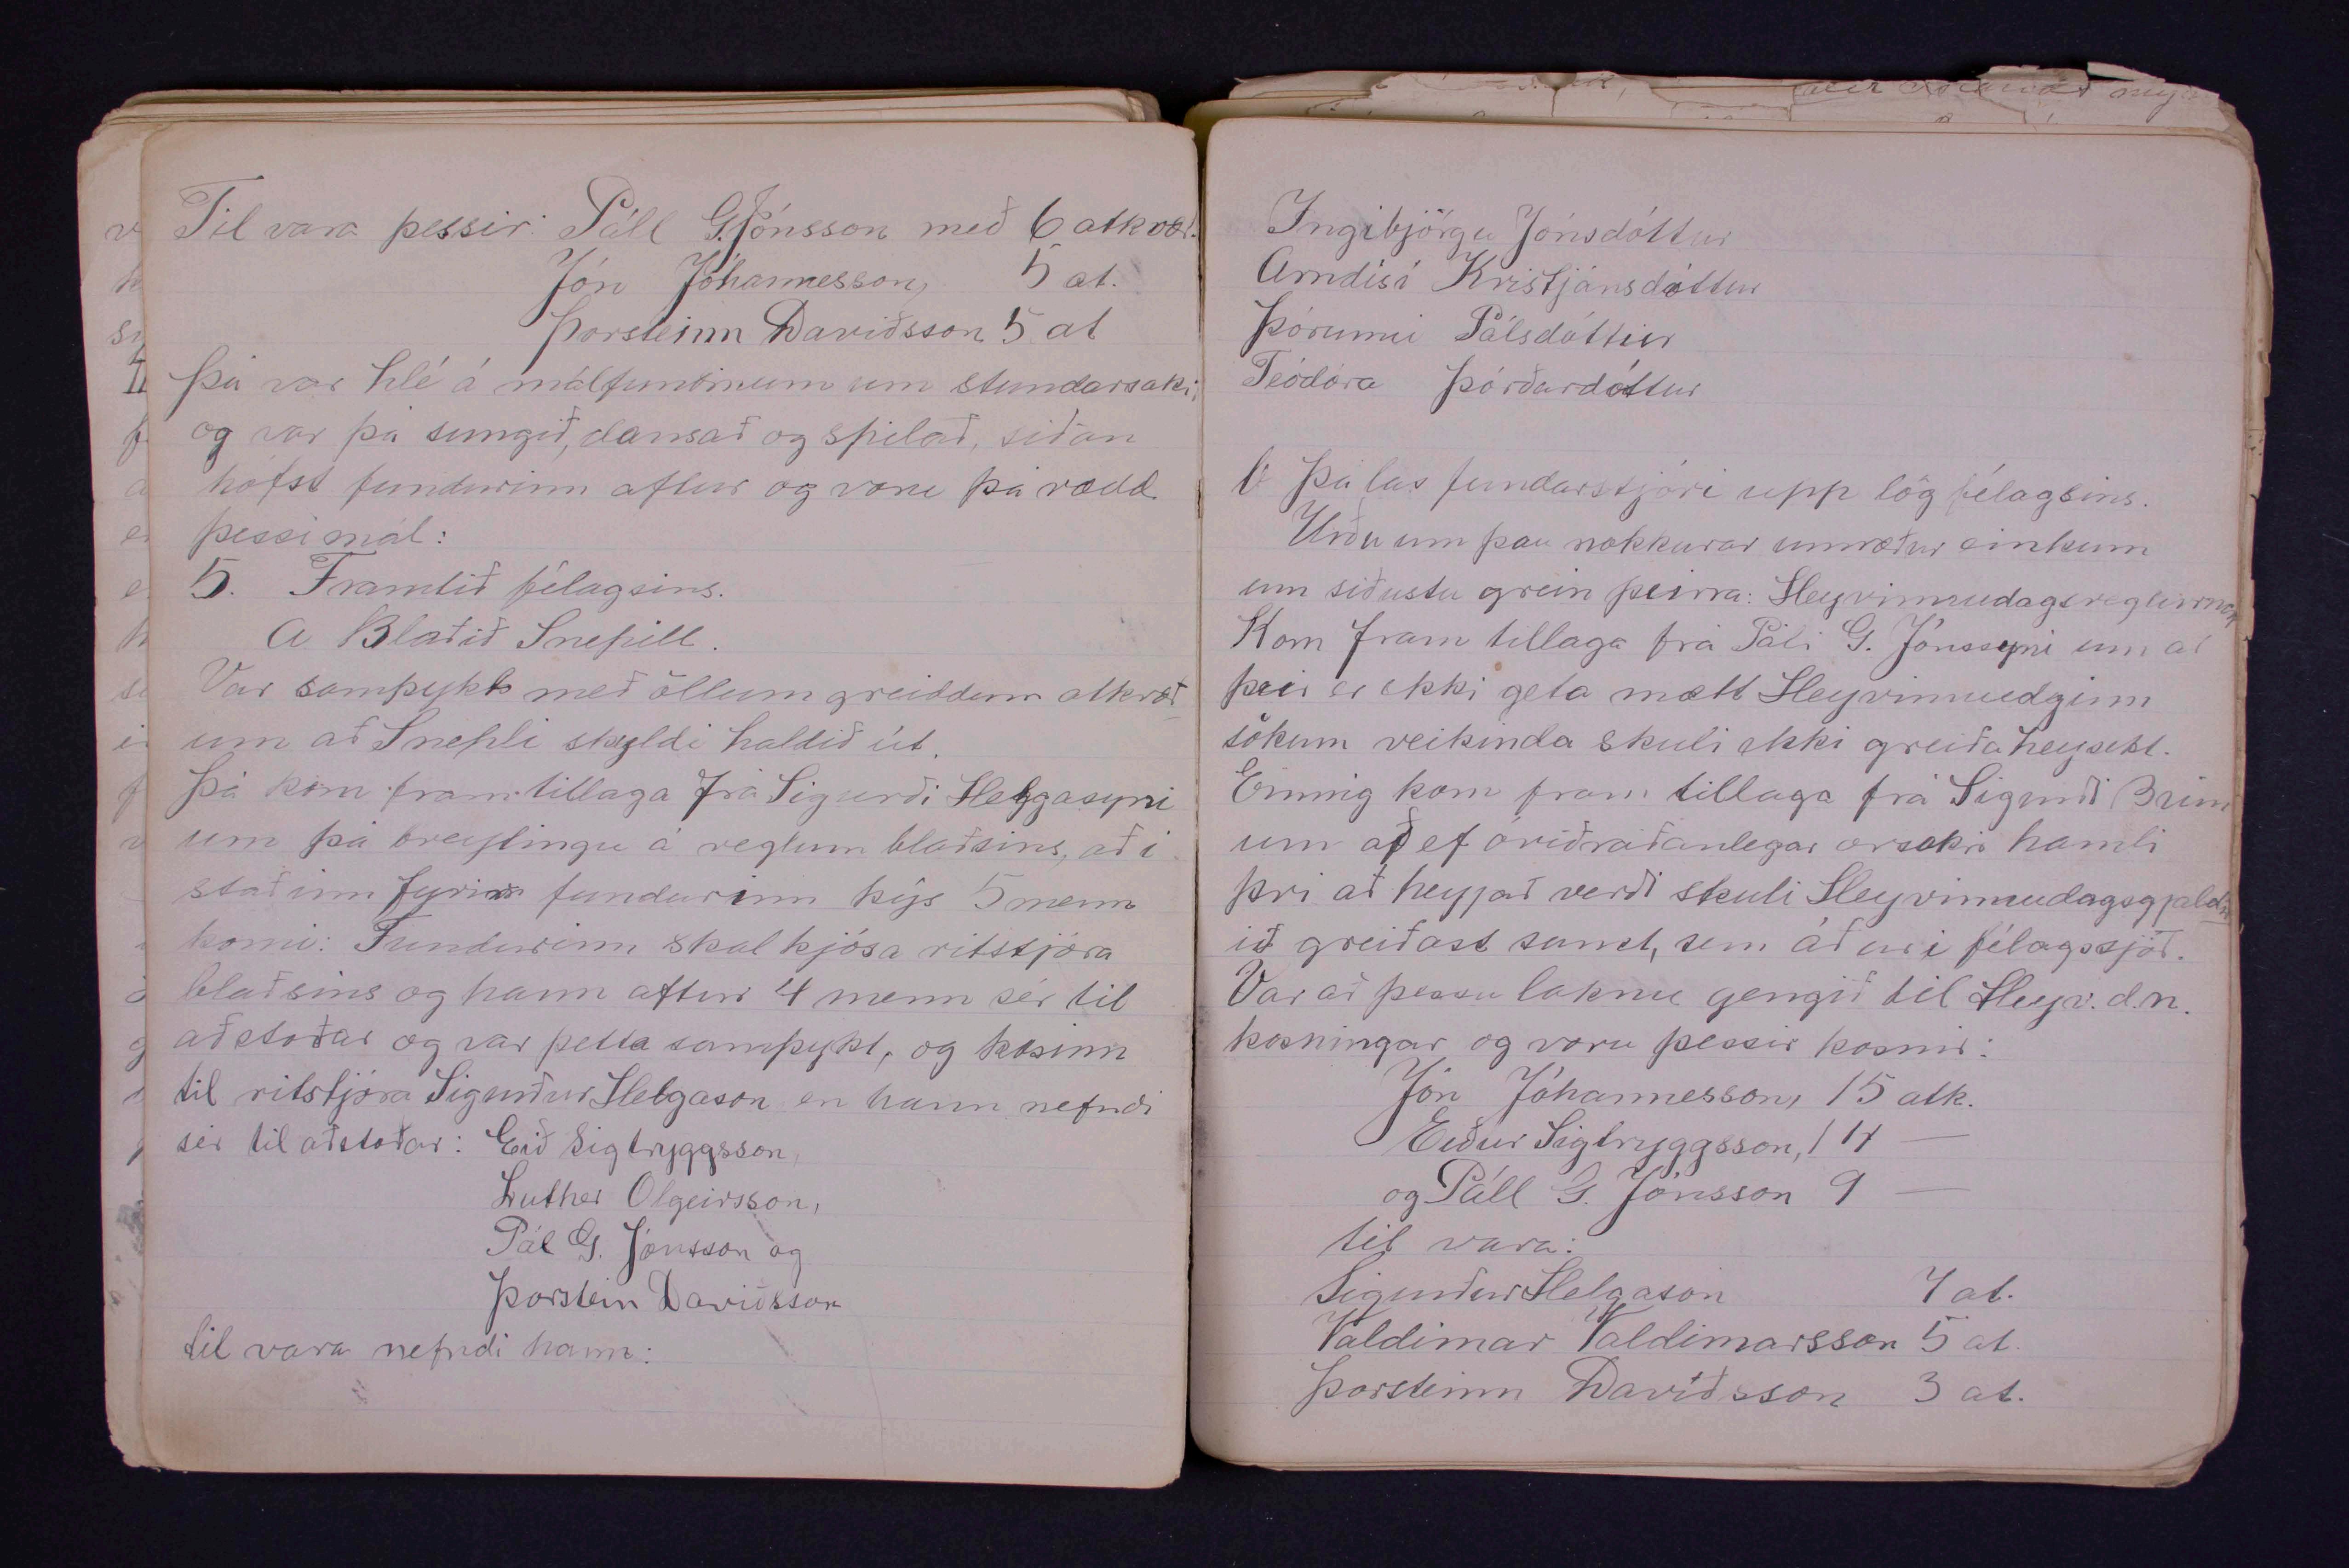 Til vara þessir: Páll G. Jónsson með 6 atkvæð.
Jón Jóhannesson, 5 at.
Þorsteinn Davíðsson 5 at
Þá var hlé á málfundinum um stundarsakir
og var þá sungið, dansað og spilað, síðan
hófst fundurinn aftur og voru þá rædd
þessi mál:
5. Framtíð félagsins.
A Blaðið Snepill.
Var samþykt með öllum greiddum atkvæð-
um að Snepli skyldi haldið út.
Þá kom fram tillaga frá Sigurði Helgasyni
um þá breytingu á reglum blaðsins, að í
staðinn fyrir fundurinn kýs 5 menn
komi: Fundurinn skal kjósa ritstjóra
blaðsins og hann aftur 4 menn sér til
aðstoðar og var þetta samþykt, og kosinn
til ritstjóra Sigurður Helgason en hann nefndi
sér til aðstoðar: Eið Sigtryggsson,
Luther Olgeirsson,
Pál G. Jónsson og
Þorstein Davíðsson
til vara nefndi hann:
Ingibjörgu Jónsdóttur
Arndísi Kristjánsdóttur
Þórunni Pálsdóttur
Teódóra Þórðardóttur
Þá las fundarstjóri upp lög félagsins.
Urðu um þau nokkurar umræður einkum
um síðustu grein þeirra: Heyvinnudagsreglurnar
Kom fram tillaga frá Páli G. Jónssyni um að
þeir er ekki geta mætt Heyvinnudginn
sökum veikinda skuli ekki greiða heysekt.
Einnig kom fram tillaga frá Sigurði Brím
um að ef óviðráðanlegar orsakir hamli
því að heyjað verði skuli Heyvinnudagsgjald
ið greiðast samt, sem áður í félagssjóð.
Var að þessu loknu gengið til Heyv.d.n.
kosningar og voru þessir kosnir:
Jón Jóhannesson, 15 atk.
Eiður Sigtryggsson, 14 —
og Páll G. Jónsson 9 —
til vara:
Sigurður Helgason 7 at.
Valdimar Valdimarsson 5 at.
Þorsteinn Davíðsson 3 at.